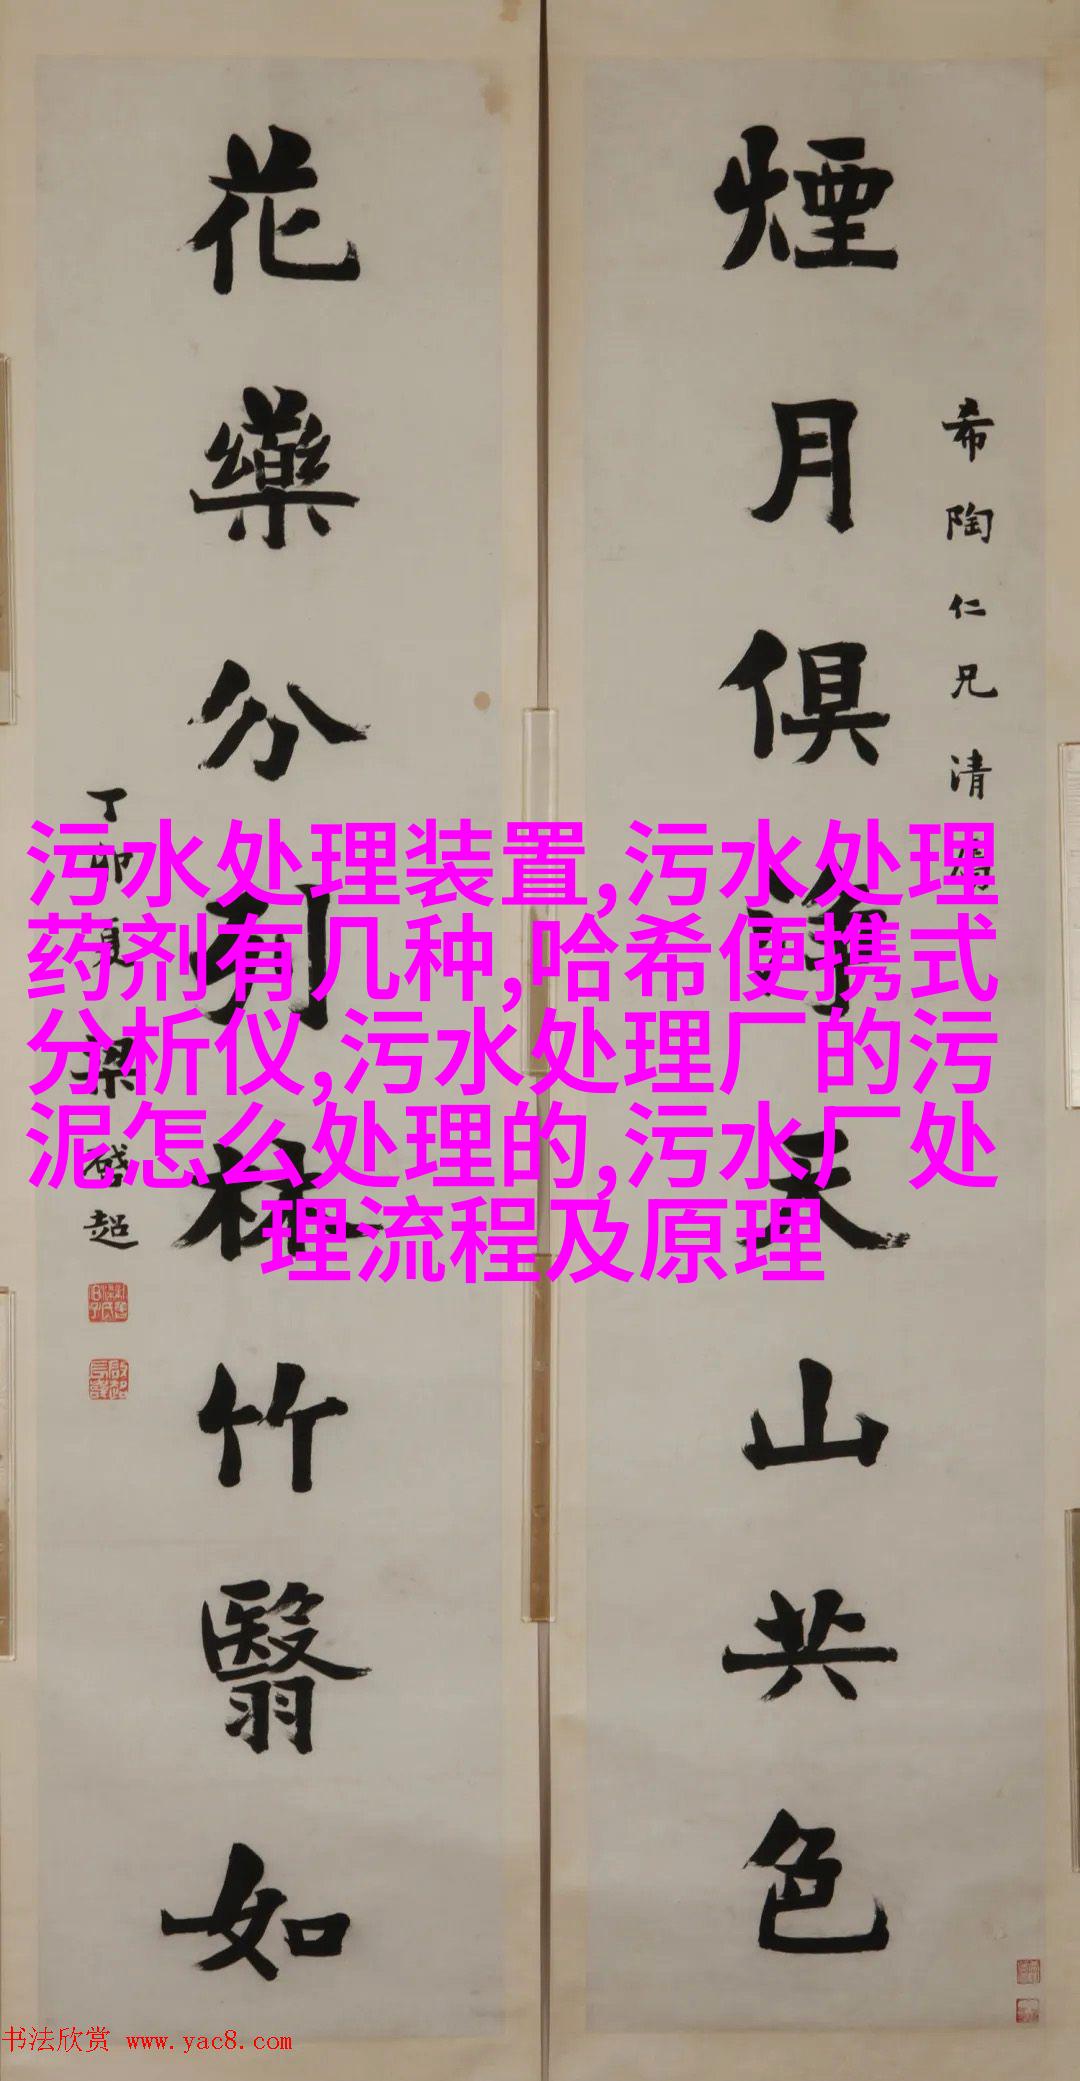 煙月俱淨天山共色
希陶仁兄清屬
花藥分列林竹翳如
丁卯夏梁啓超
污水处理装置,污水处理
药剂有几种,哈希便携式
分析仪,污水处理厂的污
泥怎么处理的,污水厂处
理流程及原理
书法欣赏 www.yac8.com